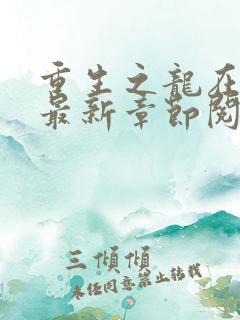 重生之龍在
最新章節閱
三傾傾
未经同意禁止转载